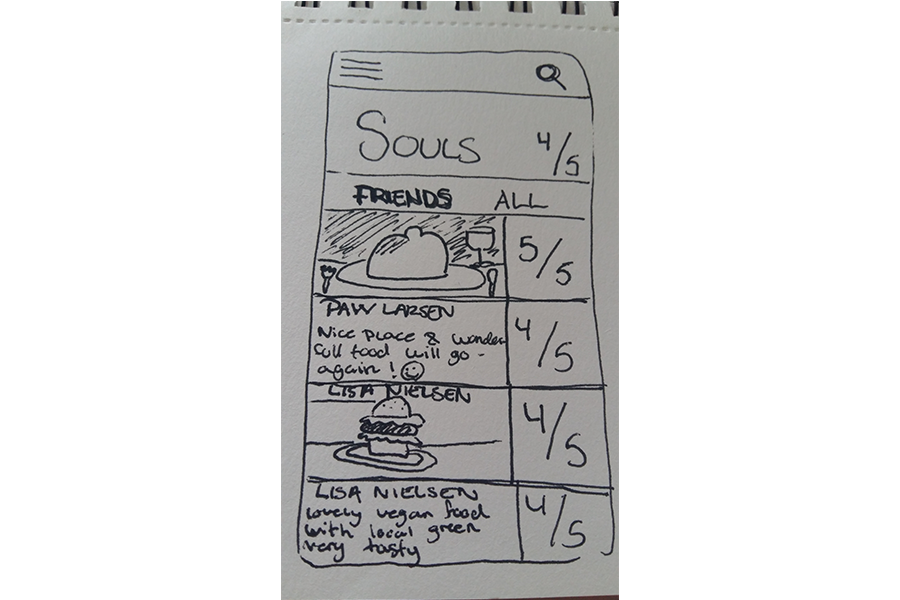 SOULS 4/5
FRIENDS ALL
5/5
PAW LARSEN
Nice place & wonder
full food will go -
again!
4/5
LISA NIELSEN
4/5
LISA NIELSEN
lovely vegan food
with local green
very tasty
4/5